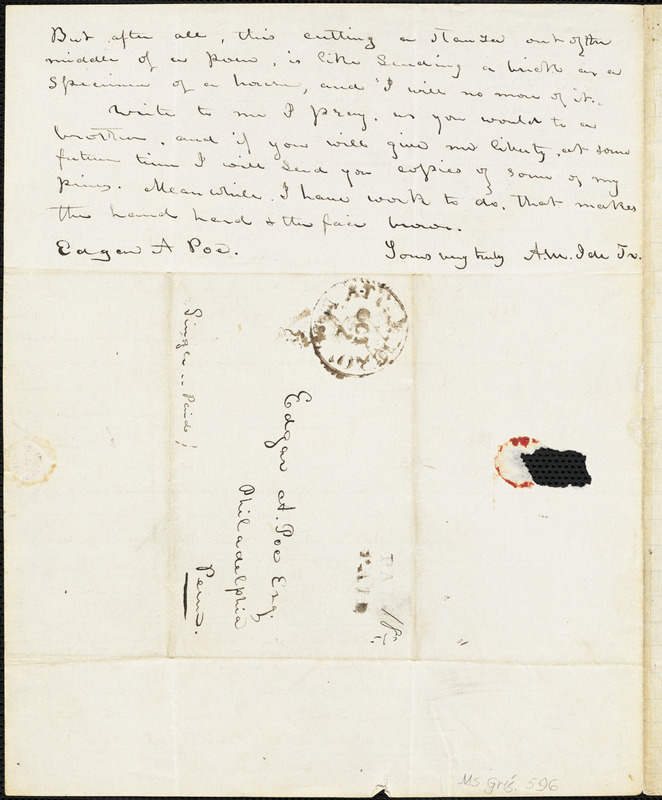 But after all, this cutting a stanza out of the
middle of a poem, is like sending a brick as a
specimen of a house, and I will no more of it.
Write to me I pray, as you would to a
brother, and if you will give me liberty, at some
future time I will send you copies of some of my
pieces. Meanwhile, I have work to do, that makes
the hand hard & the face brown.
Edgar A Poe.
Yours very truly A.M. Ide Jr.
OCT
Single .. Paid /
Edgar A. Poe Esq.
Philadelphia
Penn.
PAID
Ms. Gris. 596